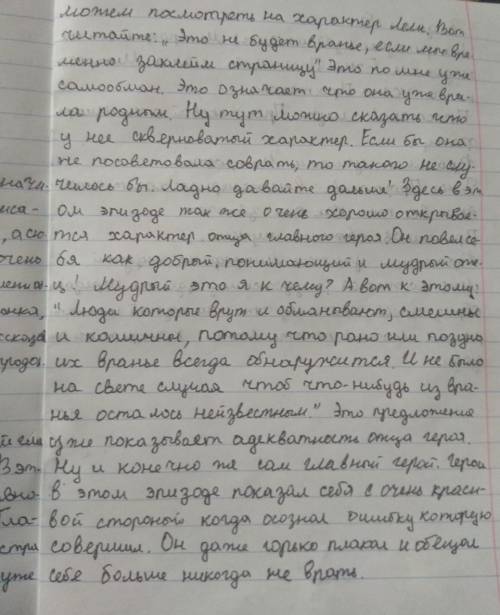 можем посмотреть на характер Лели. Вот
читайте: „Это не будет вранье, если мы вре-
менно заклеим страницу" Это по мне уже
самообман. Это означает что она уже вра-
ла родным. Ну тут можно сказать что
у нее скверноватый характер. Если бы она
не посоветовала соврать, то такого не слу-
чилось бы. Ладно давайте дальше! Здесь в эт
ом эпизоде так же, очень хорошо открывае-
тся характер отца главного героя. Он повел се-
бя как добрый, понимающий и мудрый оте-
ц! Мудрый это я к чему? А вот к этому:
"Люди которые врут и обманывают, смешны
и комичны, потому что рано или поздно
их вранье всегда обнаружится. И не было
на свете случая чтоб что-нибудь из вра-
нья осталось неизвестным." Это предложение
уже показывает адекватность отца героя.
Ну и конечно же сам главный герой. Герой
в этом эпизоде показал себя с очень краси-
вой стороной когда осознал ошибку которую
совершил. Он даже горько плакал и обещал
себе больше никогда не врать.
иса-
, а сю
очень
В эт
Гла-
стра
уже